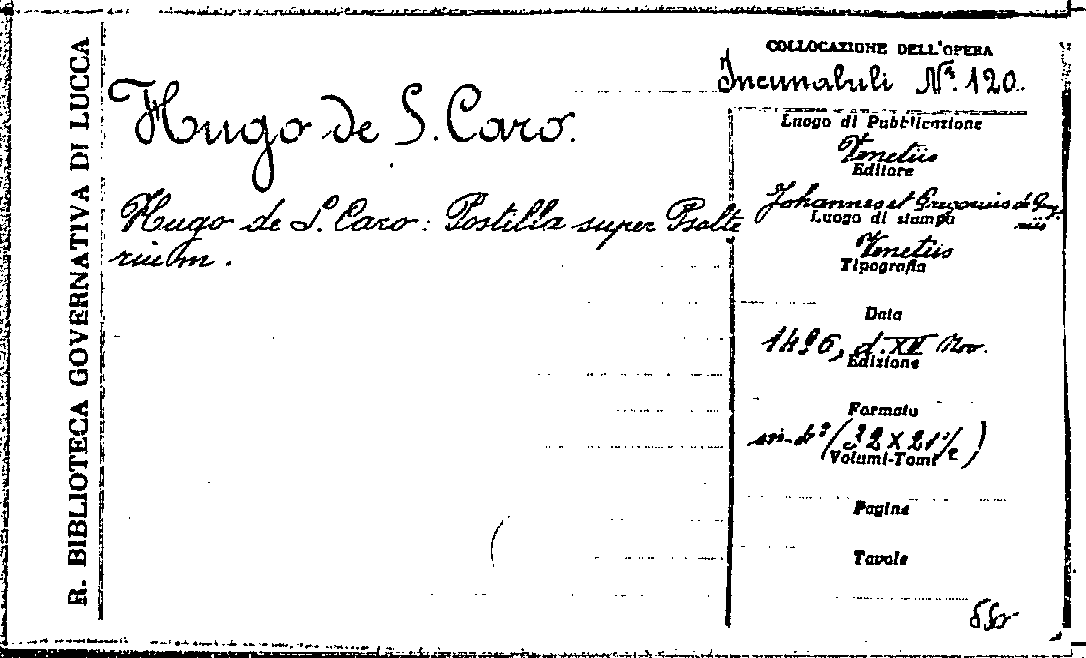 R. BIBLIOTECA GOVERNATIVA DI LUCCA
Hugo de S. Caro.
Hugo de S. Caro: Postilla super Psalte
rium.
COLLOCAZIONE DELL'OPERA
Incunabuli Nº. 120.
Luogo di Pubblicazione
Venetiis
Editore
Johannes et Gregorius de
Luogo di stampa
Venetiis
Tipografia
Data
1496, d. XII Nov.
Edizione
Formato
(32 X 21 1/2)
Volumi-Tomi
Pagine
Tavole